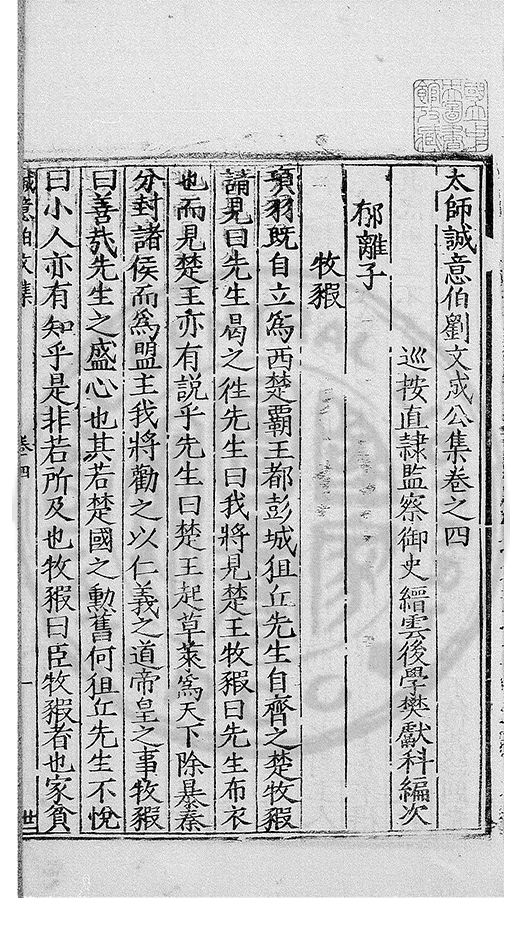 太師誠意伯劉文成公集卷之四
巡按直隸監察御史縉雲後學樊獻科編次
郁離子
牧豭
項羽既自立為西楚霸王都彭城狙丘先生自齊之楚牧豭
請見曰先生曷之徃先生曰我將見楚王牧豭曰先生布衣
也而見楚王亦有説乎先生曰楚王起草萊為天下除暴秦
分封諸侯而為盟主我將勸之以仁義之道帝皇之事牧豭
曰善㢤先生之盛心也其若楚國之勲舊何狙丘先生不悅
曰小人亦有知乎是非若所及也牧豭曰臣牧豭者也家貧
誠意伯文集
卷四
一
世